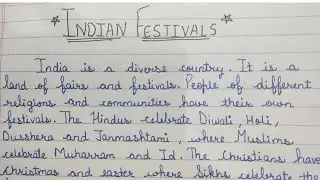 INDIAN FESTIVALS
India is a diverse country. It is a
land of fairs and festivals. People of different
religions and communities have their own
festivals. The Hindus celebrate Diwali, Holi,
Dusshera and Janmashtami, where Muslims
celebrate Muharram and Id. The Christians have
Christmas and easter where Sikhs celebrate the